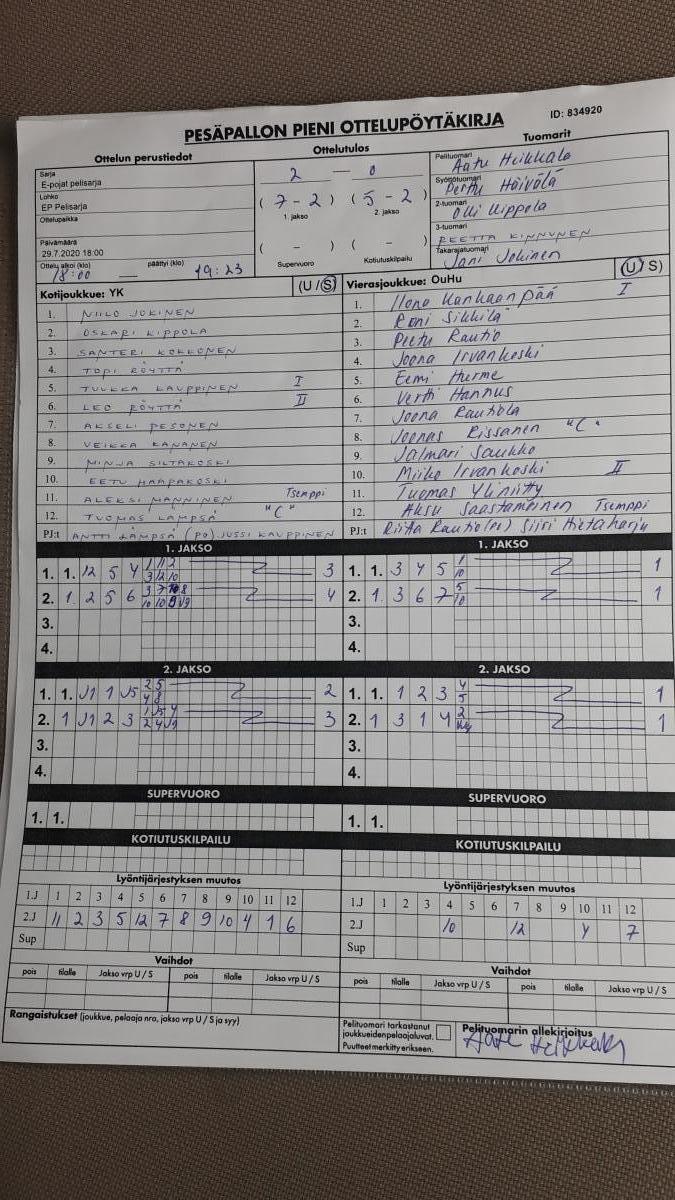 PESÄPALLON PIENI OTTELUPÖYTÄKIRJA
ID: 834920
Ottelun perustiedot
Sarja
E-pojat pelisarja
Lohko
EP Pelisarja
Ottelupaikka
Päivämäärä
29.7.2020 18:00
Ottelu alkoi (klo) 18:00 päättyi (klo) 19:23
Ottelutulos
2 — 0
( 7 - 2 ) ( 5 - 2 )
1. jakso 2. jakso
( - ) ( - )
Supervuoro Kotiutuskilpailu
Tuomarit
Pelituomari Aatu Heikkala
Syöttötuomari Perttu Höivölä
2-tuomari Olli Kippola
3-tuomari REETTA KINNUNEN
Takarajatuomari Jani Jokinen
Kotijoukkue: YK (U / S)
1. NIILO JOKINEN
2. OSKARI KIPPOLA
3. SANTERI KOKKONEN
4. TOPI RÖYTTÄ
5. TUUKKA KAUPPINEN I
6. LEO RÖYTTÄ II
7. AKSELI PESONEN
8. VEIKKA KANANEN
9. MINJA SILTAKOSKI
10. EETU HAAPAKOSKI
11. ALEKSI MANNINEN Tsemppi
12. TUOMAS LÄMPSÄ "C"
PJ:t ANTTI LÄMPSÄ (po) JUSSI KAUPPINEN
Vierasjoukkue: OuHu (U / S)
1. Ilona Kankaanpää I
2. Roni Sikkilä
3. Peetu Rautio
4. Joona Irvankoski
5. Eemi Hurme
6. Vertti Hannus
7. Joona Rautiola
8. Joonas Rissanen "C"
9. Jalmari Saukko
10. Miiko Irvankoski II
11. Tuomas Yliniitty
12. Aksu Saastamoinen Tsemppi
PJ:t Riitta Rautio(er) Siiri Hietaharju
1. JAKSO
1. 1. 12 5 4 1 1 2 3
3 12 10
2. 1 2 5 6 4
3.
4.
1. JAKSO
1. 1. 3 4 5 1 1
10
2. 1 3 6 7 5 1
10
3.
4.
2. JAKSO
1. 1. J1 1 J5 2 5 2
4 8
2. 1 J1 2 3 1 J5 4 3
2 4 J1
3.
4.
2. JAKSO
1. 1. 1 2 3 4 1
5
2. 1 3 1 4 2 1
3.
4.
SUPERVUORO
1. 1.
SUPERVUORO
1. 1.
KOTIUTUSKILPAILU
KOTIUTUSKILPAILU
Lyöntijärjestyksen muutos
1.J 1 2 3 4 5 6 7 8 9 10 11 12
2.J 11 2 3 5 12 7 8 9 10 4 1 6
Sup
Lyöntijärjestyksen muutos
1.J 1 2 3 4 5 6 7 8 9 10 11 12
2.J 10 12 4 7
Sup
Vaihdot
pois tilalle Jakso vrp U / S pois tilalle Jakso vrp U / S
Vaihdot
pois tilalle Jakso vrp U / S pois tilalle Jakso vrp U / S
Rangaistukset (joukkue, pelaaja nro, jakso vrp U / S ja syy)
Pelituomari tarkastanut
joukkueiden pelaajaluvat.
Puutteet merkitty erikseen.
Pelituomarin allekirjoitus
Aatu Heikkala